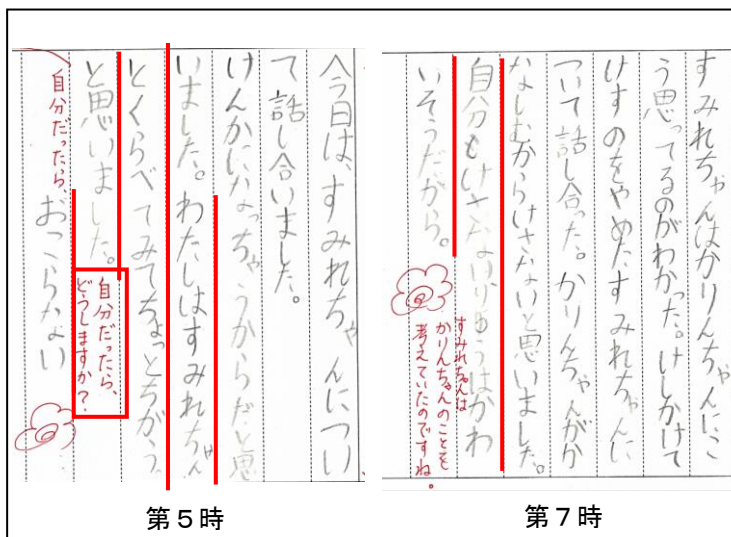 今日は、すみれちゃんについ
て話し合いました。
けんかになっちゃうからだと思
いました。わたしはすみれちゃん
とくらべてみてちょっとちがう。
と思いました。
自分だったら、
どうしますか?
自分だったら、
おこらない
第5時
すみれちゃんはかりんちゃんにこ
う思ってるのがわかった。けしかけて
けすのをやめたすみれちゃんに
ついて話し合った。かりんちゃんがか
なしむからけさないと思いました。
自分もけさないりゆうはかわ
いそうだから。
すみれちゃんは
かりんちゃんのことを
考えていたのですね。
第7時